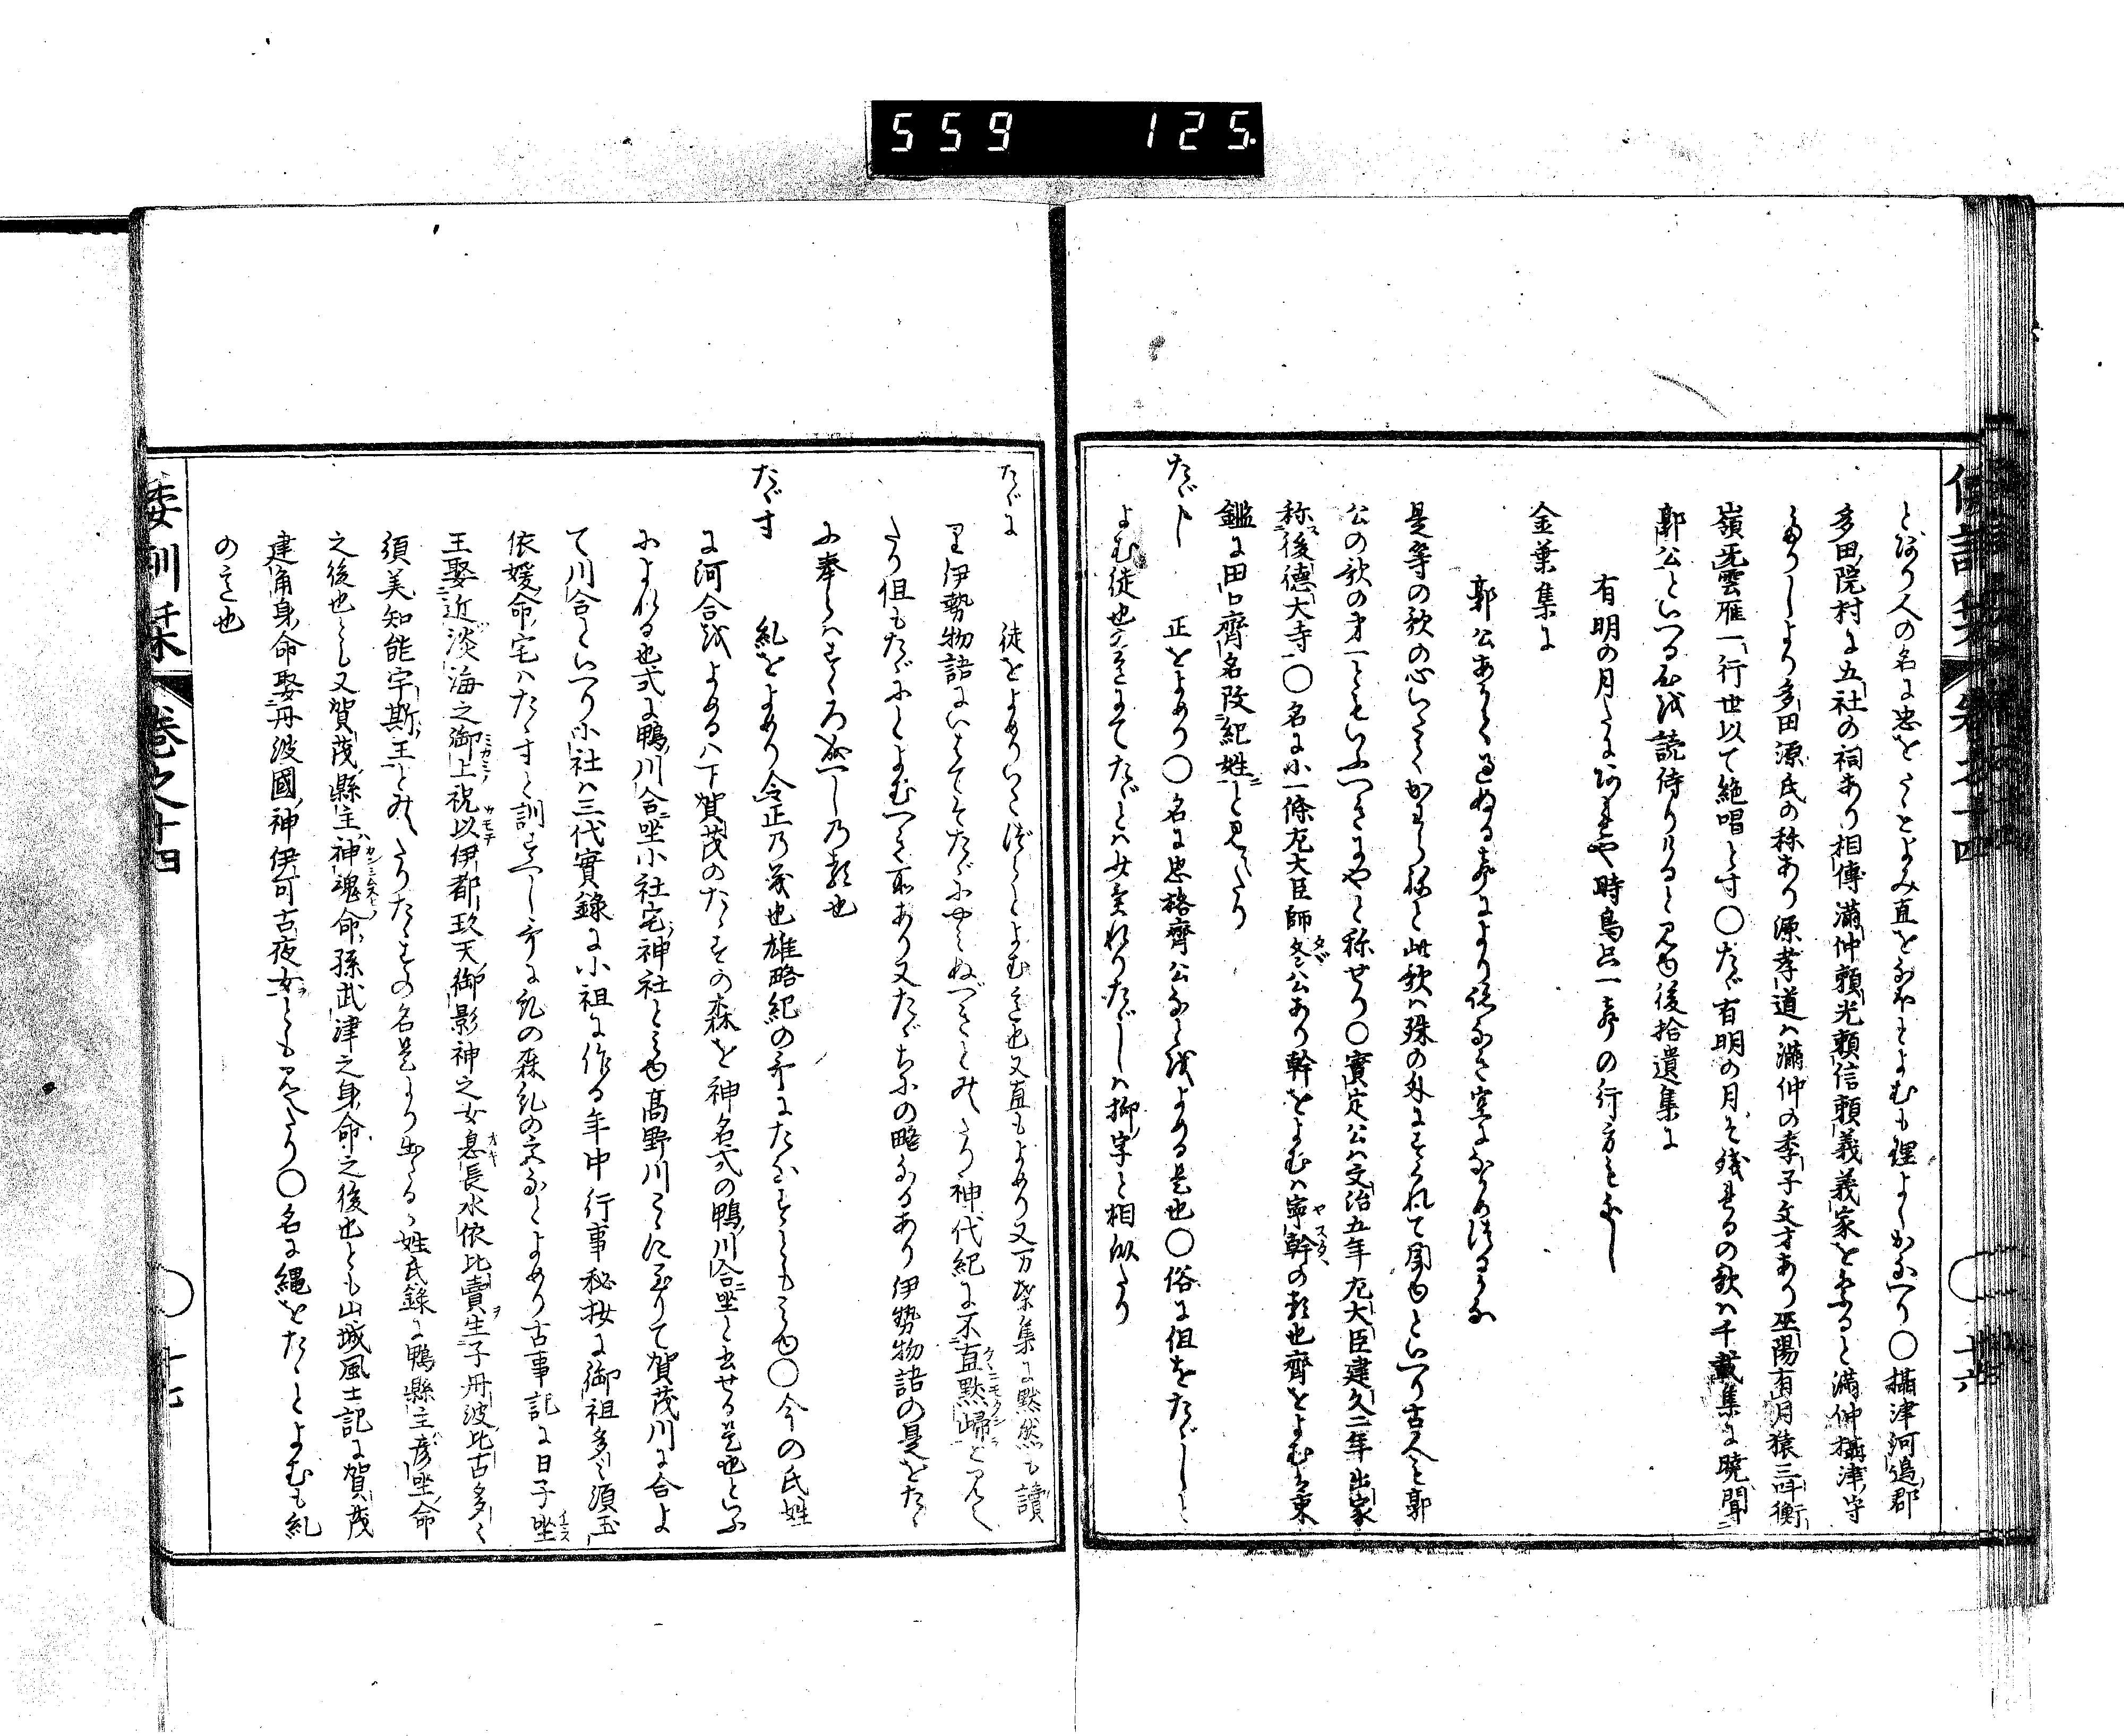 559 125
とあり人の名に忠をたゝとよみ直をなほとよむも理よしかなへり〇攝津河邉郡
多田院村に五社の祠あり相傳滿仲頼光頼信頼義義家を
滿仲攝津守
より多田源氏の称あり源孝道ハ滿仲の季子文才あり巫陽有月猿三叫衡
嶺無雲雁一行世以て絶唱とす〇たゞ有明の月そ殘れるの歌ハ千載集に曉聞
郭公といへる心を読侍りけると見ゆ後拾遺集に
有明の月たにあれや時鳥只一聲の行方も見む
金葉集に
郭公あかて過ぬる聲により跡なき空をなかめつるかな
是等の歌の心いとよくかよへれと此歌ハ殊の外にすくれて聞ゆといへり古人も郭
公の歌の才一ともいふへきにやと称せり〇實定公ハ文治五年左大臣建久二年出家
称後德大寺〇名に小一條左大臣師尹公あり幹をよむハ寧幹の義也齊をよむハ東
鑑に田口齊名改紀姓と見えたり
たゞし 正をよめり〇名に忠格齊公なとをよめる是也〇俗に但をたゞしと
よむ徒也
たゞしハ抑字と相似たり
倭訓栞 卷之十四 〇 十六
たゞに 徒をよめりいたづらとよむ意也又直もよめり又万葉集に黙然も讀
り伊勢物語に
神代紀に不直黙歸と見え
たり但もたゞにとよむへき所あり又たゞちにの略なるあり伊勢物語の是をたゝ
に奉らハすゝろなるへしの類也
たゞす 糺をよめり令正乃義也雄略紀の哥にたゞすともみゆ〇今の氏姓
に河合をよめるハ下賀茂のたゝすの森を神名式の鴨川合坐と書せる是也といふ
によれる也式に鴨川合坐小社宅神社とみゆ高野川こゝに至りて賀茂川に合よ
て川合といへり小社ハ三代實錄に小祖に作る年中行事秘抄に御祖多ミ須玉
依媛命宅ハたゝすと訓すへし哥に糺の森糺の宮なとよめり古事記に日子坐
王娶近淡海之御上祝以伊都玖天御影神之女息長水依比賣生子丹波比古多々
須美知能宇斯王とみえたりたゝすの名是より出たる歟姓氏錄に鴨縣主彦坐命
之後也とも又賀茂縣主神魂命孫武津之身命之後也とも山城風土記に賀茂
建角身命娶丹波國神伊可古夜女ともみえたり〇名に繩をたゝとよむも糺
の意也
倭訓栞 卷之十四 〇 十七